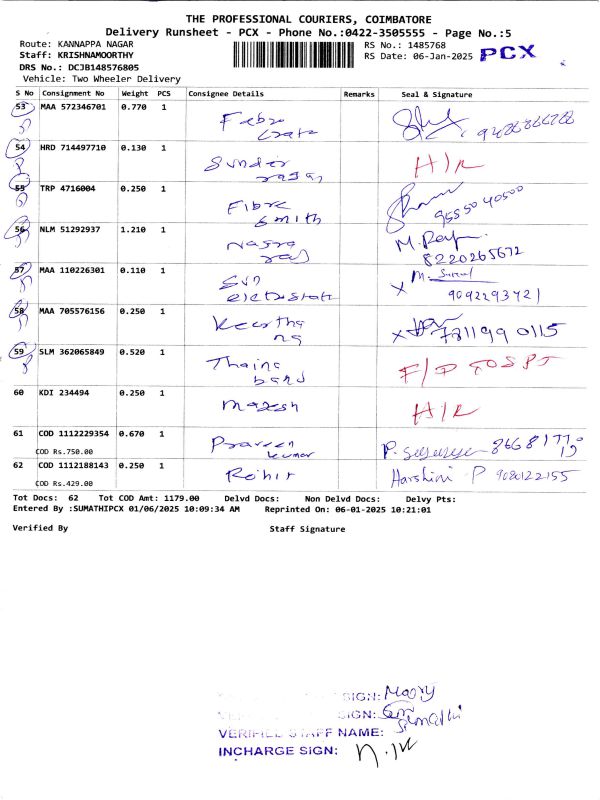 THE PROFESSIONAL COURIERS, COIMBATORE
Delivery Runsheet - PCX - Phone No.:0422-3505555 - Page No.:5
Route: KANNAPPA NAGAR
RS No.: 1485768
Staff: KRISHNAMOORTHY
RS Date: 06-Jan-2025 PCX
DRS No.: DCJB148576805
Vehicle: Two Wheeler Delivery
S No Consignment No Weight PCS Consignee Details Remarks Seal & Signature
53 MAA 572346701 0.770 1 Febro
54 HRD 714497710 0.130 1 Sunder rajan H/R
55 TRP 4716004 0.250 1 Fibre Smith 9555040500
56 NLM 51292937 1.210 1 Nagra raj M. 8220265672
57 MAA 110226301 0.110 1 Sun 9092293721
58 MAA 705576156 0.250 1 Keertha na
59 SLM 362065849 0.520 1 Thaina banu
60 KDI 234494 0.250 1 H/R
61 COD 1112229354 0.670 1 Praveen kumar
COD Rs.750.00
62 COD 1112188143 0.250 1 Rohit Harshini P 9080122155
COD Rs.429.00
Tot Docs: 62 Tot COD Amt: 1179.00 Delvd Docs: Non Delvd Docs: Delvy Pts:
Entered By :SUMATHIPCX 01/06/2025 10:09:34 AM Reprinted On: 06-01-2025 10:21:01
Verified By Staff Signature
SIGN:
SIGN: Sumathi
VERIFIED STAFF NAME:
INCHARGE SIGN: